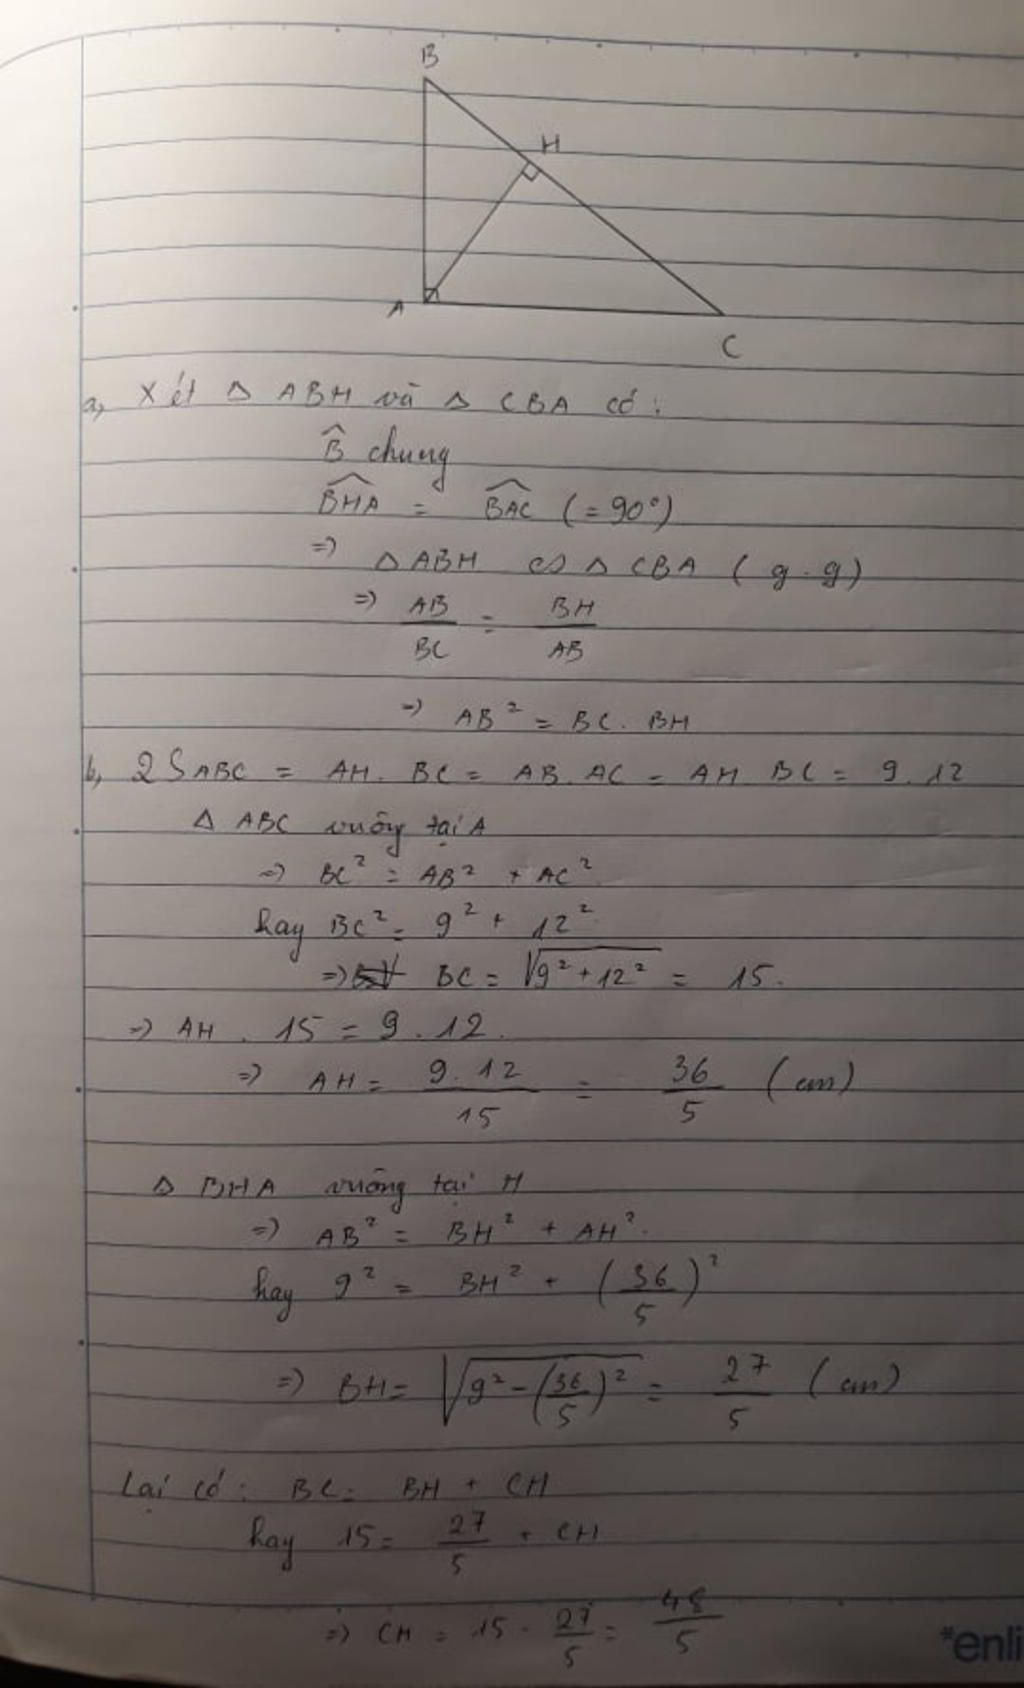 B
H
A
C
a, Xét Δ ABH và Δ CBA có:
B̂ chung
\widehat{BHA} = \widehat{BAC} (= 90°)
=> Δ ABH ∽ Δ CBA (g.g)
=> AB/BC = BH/AB
=> AB² = BC. BH
b, 2 SABC = AH. BC = AB. AC = AH BC = 9. 12
Δ ABC vuông tại A
=> BC² = AB² + AC²
hay BC² = 9² + 12²
=> BC = √(9² + 12²) = 15.
=> AH . 15 = 9. 12.
=> AH = 9. 12/15 = 36/5 (cm)
Δ BHA vuông tại H
=> AB² = BH² + AH².
hay 9² = BH² + (36/5)²
=> BH = √(9² - (36/5)²) = 27/5 (cm)
Lại có: BC = BH + CH
hay 15 = 27/5 + CH
=> CH = 15 - 27/5 = 48/5
*enli